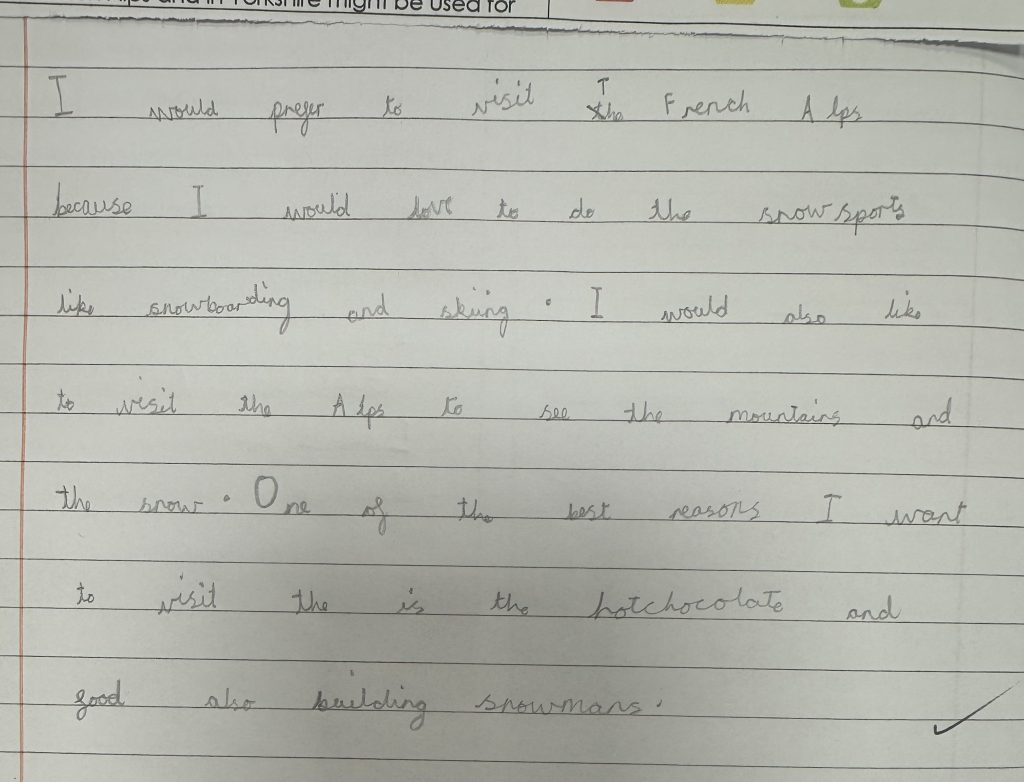 and in Yorkshire might be used for
I would prefer to visit The French Alps
because I would love to do the snowsports
like snowboarding and skiing. I would also like
to visit the Alps to see the mountains and
the snow. One of the best reasons I want
to visit the is the hotchocolate and
good also building snowmans.